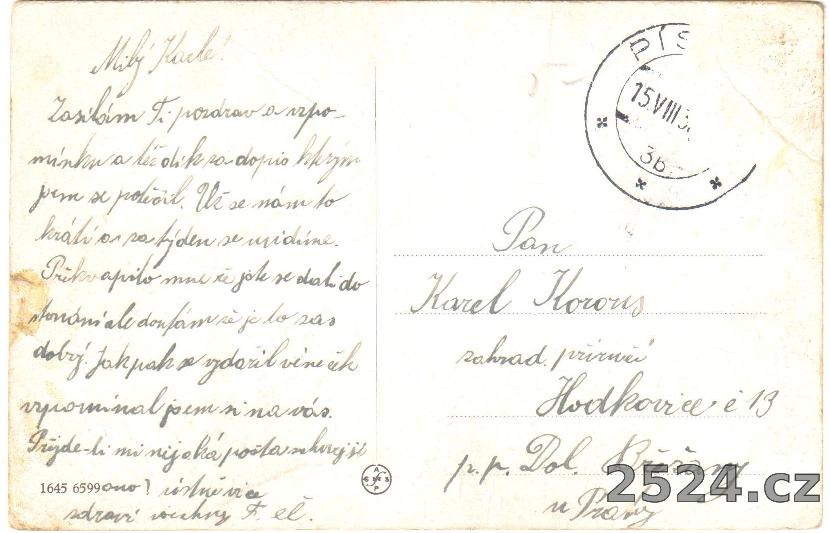 Milý Karle!
Zasílám Ti pozdrav a vzpo-
mínku a též dík za dopis kterým
jsem se potěšil. Už se nám to
krátí a za týden se uvidíme.
Překvapilo mne že jste se dali do
stonání ale doufám že je to zas
dobrý. Jak pak se vydařil věneček
vzpomínal jsem si na vás.
Přijde-li mi nějaká pošta schovej ji
ano? ústně více
zdraví všechny F.
1645 6599
PÍS
15.VIII.3
3b
Pan
Karel Korous
zahrad. příručí
Hodkovice č 13
p.p. Dol. Břežany
u Prahy
2524.cz